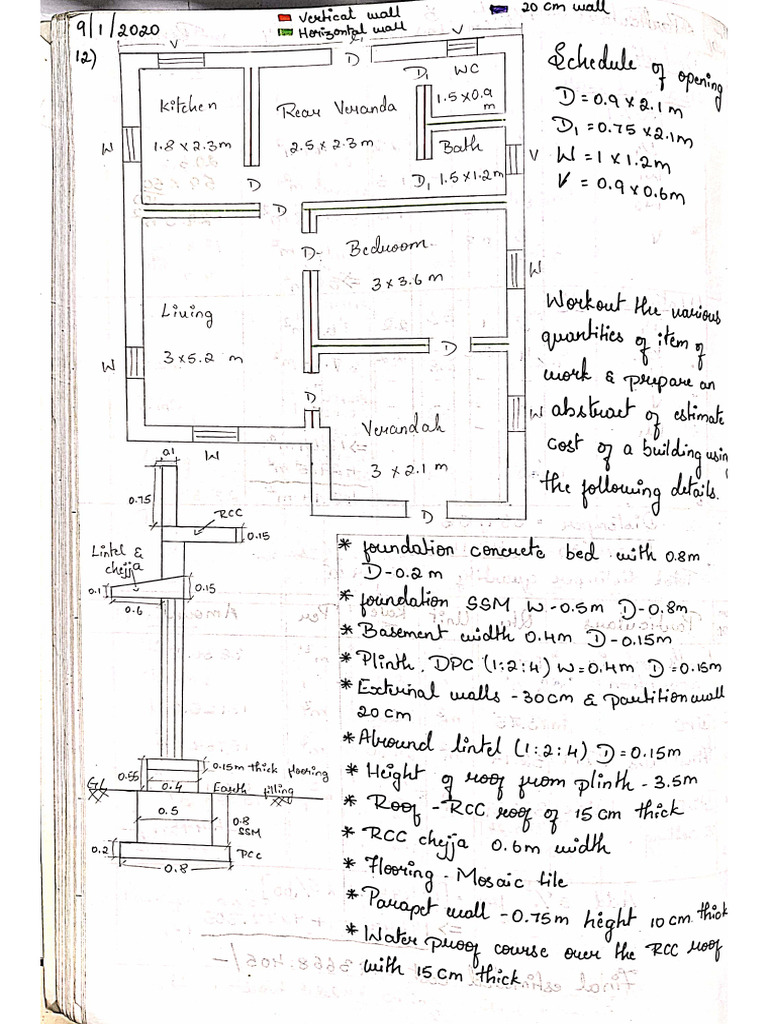 9/1/2020
Vertical wall
Horizontal wall
20 cm wall
12)
V
V
D
WC
1.5 x 0.9 m
D1
Kitchen
1.8 x 2.3m
Rear Veranda
2.5 x 2.3m
Bath
D1 1.5 x 1.2m
W
V
D
D
Bedroom
3 x 3.6 m
D
W
Living
3 x 5.2 m
W
D
D
Verandah
3 x 2.1 m
W
W
D
Schedule of opening
D = 0.9 x 2.1 m
D1 = 0.75 x 2.1m
W = 1 x 1.2m
V = 0.9 x 0.6m
Workout the various
quantities of item of
work & prepare an
abstract of estimate
cost of a building usin
the following details.
0.1
0.75
RCC
0.15
Lintel &
chejja
0.1
0.15
0.6
0.15m thick flooring
0.55
0.4
GL
Earth filling
0.5
0.8
SSM
0.2
PCC
0.8
* foundation concrete bed with 0.8m
D-0.2 m
* foundation SSM W-0.5m D-0.8m
* Basement width 0.4m D-0.15m
* Plinth. DPC (1:2:4) W=0.4m D=0.15m
* External walls - 30cm & partition wall
20 cm
* Around lintel (1:2:4) D=0.15m
* Height of roof from plinth - 3.5m
* Roof - RCC roof of 15 cm thick
* RCC chejja 0.6m width
* Flooring - Mosaic tile
* Parapet wall - 0.75m height 10cm thick
* Water proof course over the RCC roof
with 15cm thick.